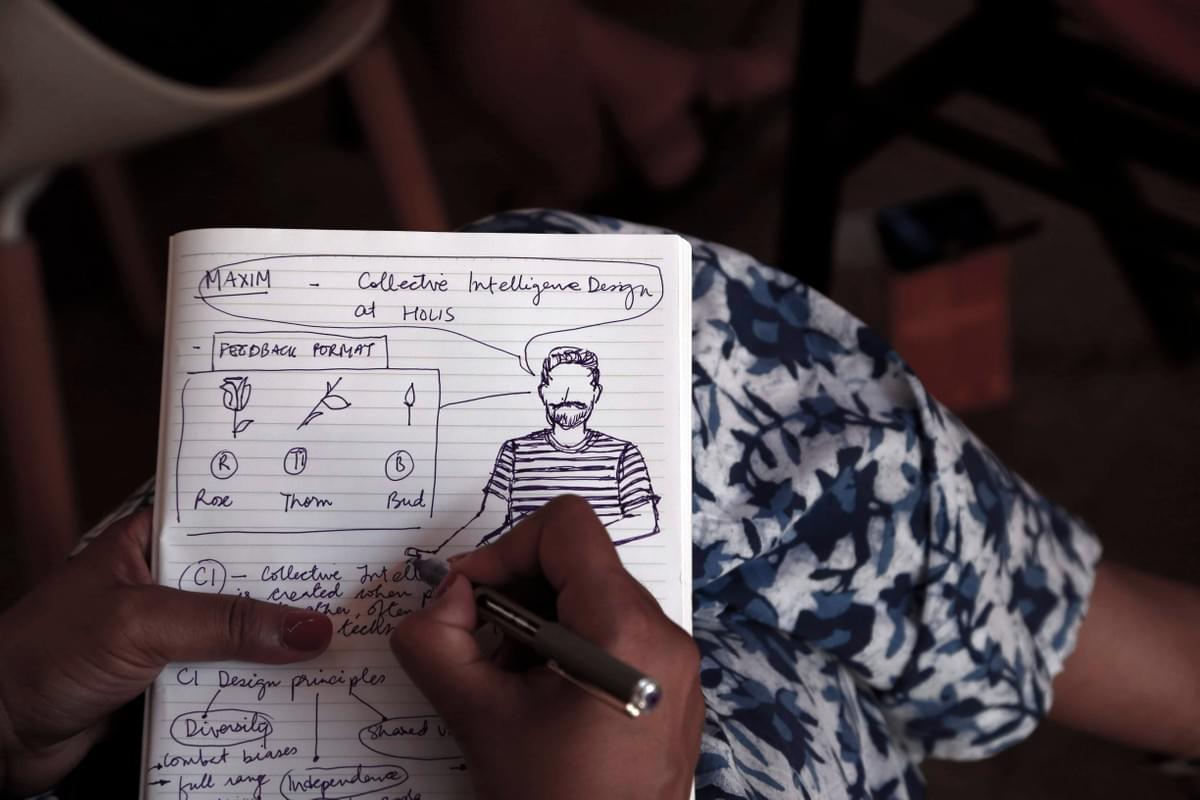 MAXIM - Collective Intelligence Design
at HOLIS
- FEEDBACK FORMAT
R T B
Rose Thorn Bud
CI - Collective
is created when
often
CI Design principles
Diversity
Shared
→ combat biases
→ full range
Independence